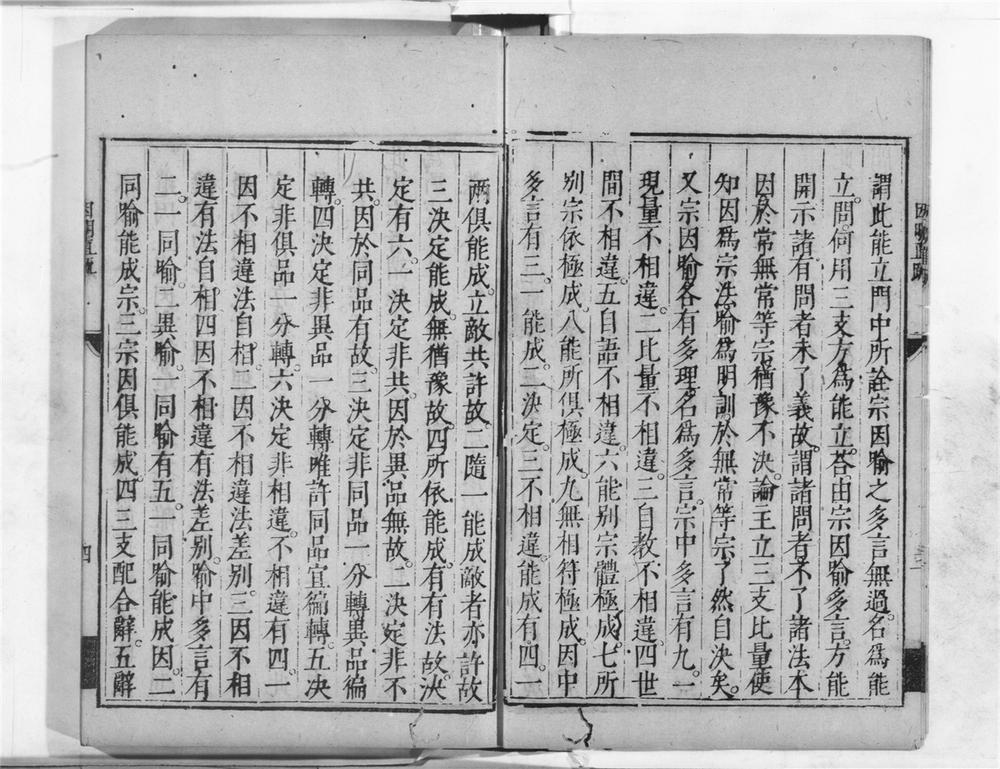 謂此能立門中所詮宗因喻之多言無過名爲能
立問何用三支方爲能立荅由宗因喻多言方能
開示諸有問者未了義故謂諸問者不了諸法本
因於常無常等宗猶豫不決論主立三支比量使
知因爲宗法喻爲明訓於無常等宗了然自決矣
又宗因喻各有多理名爲多言宗中多言有九一
現量不相違二比量不相違三自教不相違四世
間不相違五自語不相違六能别宗體極成七所
别宗依極成八能所俱極成九無相符極成因中
多言有三一能成二決定三不相違能成有四一
兩俱能成立敵共許故二隨一能成敵者亦許故
三決定能成無猶豫故四所依能成有有法故決
定有六一決定非共因於異品無故二決定非不
共因於同品有故三決定非同品一分轉異品徧
轉四決定非異品一分轉唯許同品宜徧轉五決
定非俱品一分轉六決定非相違不相違有四一
因不相違法自相二因不相違法差别三因不相
違有法自相四因不相違有法差别喻中多言有
二一同喻二異喻一同喻有五一同喻能成因二
同喻能成宗三宗因俱能成四三支配合辭五辭
四